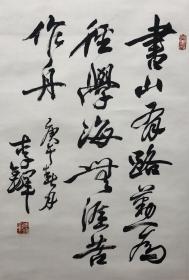 書山有路勤為
徑學海無涯苦
作舟
庚午秋月
李鐸